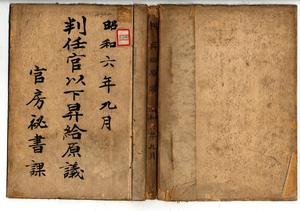 昭和六年九月
判任官以下昇給原議
官房秘書課